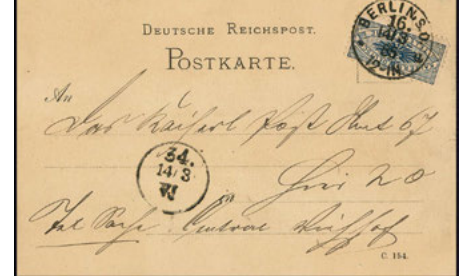 DEUTSCHE REICHSPOST.
POSTKARTE.
BERLIN S.O.
16.
14/3
85
12-1N
An
Das Kaiserl Post Amt 67
34.
14/3
Hier
Central Viehhof
C. 154.